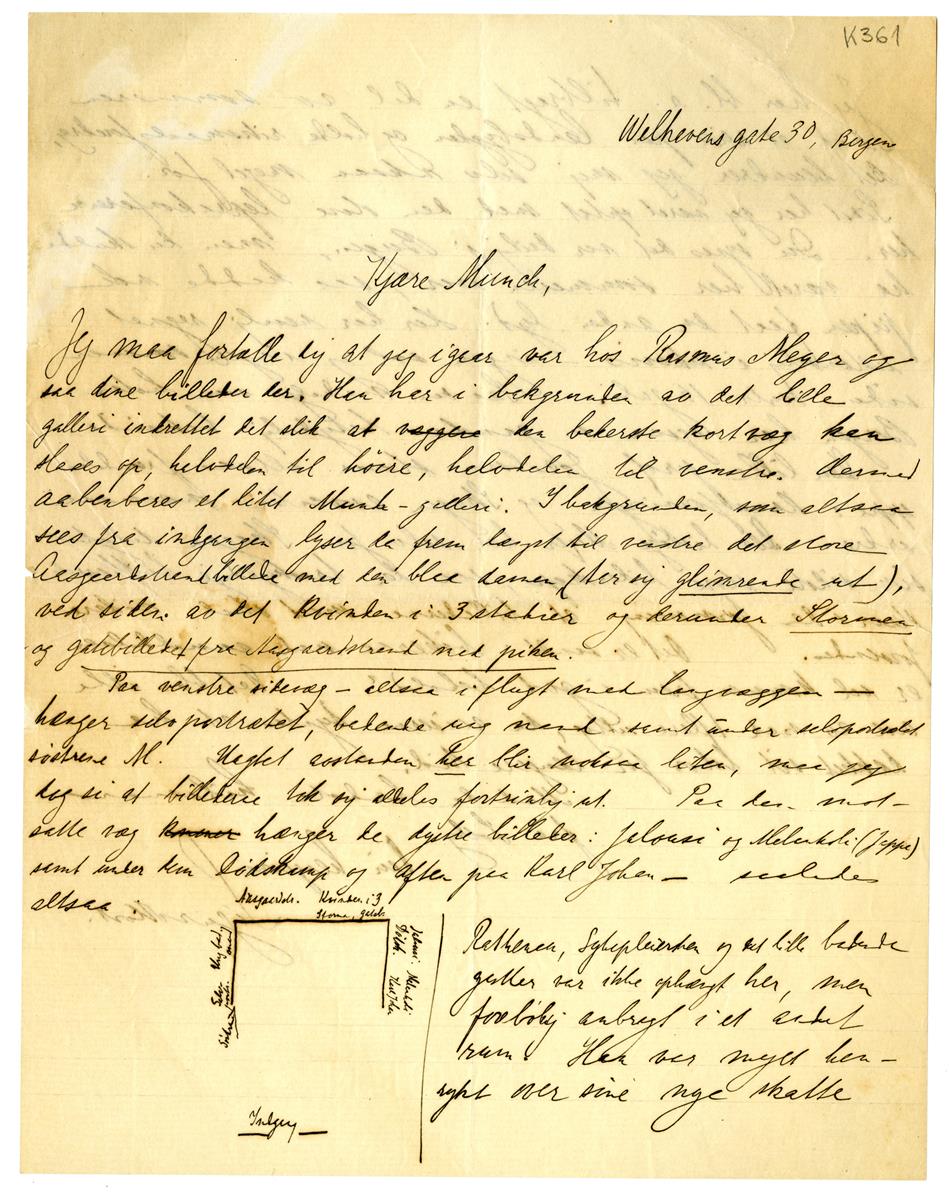 K361
Welhevens gate 30, Bergen
Kjære Munch,
Jeg maa fortælle dig at jeg igaar var hos Rasmus Meyer og
saa dine billeder der. Han har i bakgrunden av det lille
galleri indrettet det slik at væggene den bakerste kortvæg kan
slaaes op, halvdelen til høire, halvdelen til venstre. Dermed
aabenbares et litet Munch-galleri. I bakgrunden, som altsaa
sees fra indgangen, lyser da frem længst til venstre det store
Aasgaardstrandbillede med den blaa damen (tar sig glimrende ut),
ved siden av det Kvinden i 3 stadier og derunder Stormen
og gatebilledet fra Aasgaardstrand med piken.
Paa venstre sidevæg – altsaa i flugt med langvæggen –
hænger selvportrætet, badende ung mand samt under selvportrætet
søstrene M. Uagtet avstanden her blir noksaa liten, maa jeg
dog si at billederne tok sig aldeles fortrinlig ut. Paa den mot-
satte væg hænger de dystre billeder: Jalousi og Melankoli (Jappe)
samt under dem Dødskamp og Aften paa Karl Johan – saaledes
altsaa
Aasgaardstr. Kvinden i 3
Storm, gateb.
Ung bad.
mand
Selv-
portr.
Søstrene
Jalousi. Melankoli
Dødsk. Karl Joh.
Indgang
Rathenau, Sykepleiersken og det lille badende
gutter var ikke ophængt her, men
foreløbig anbragt i et andet
rum. Han var meget hen-
rykt over sine nye skatte